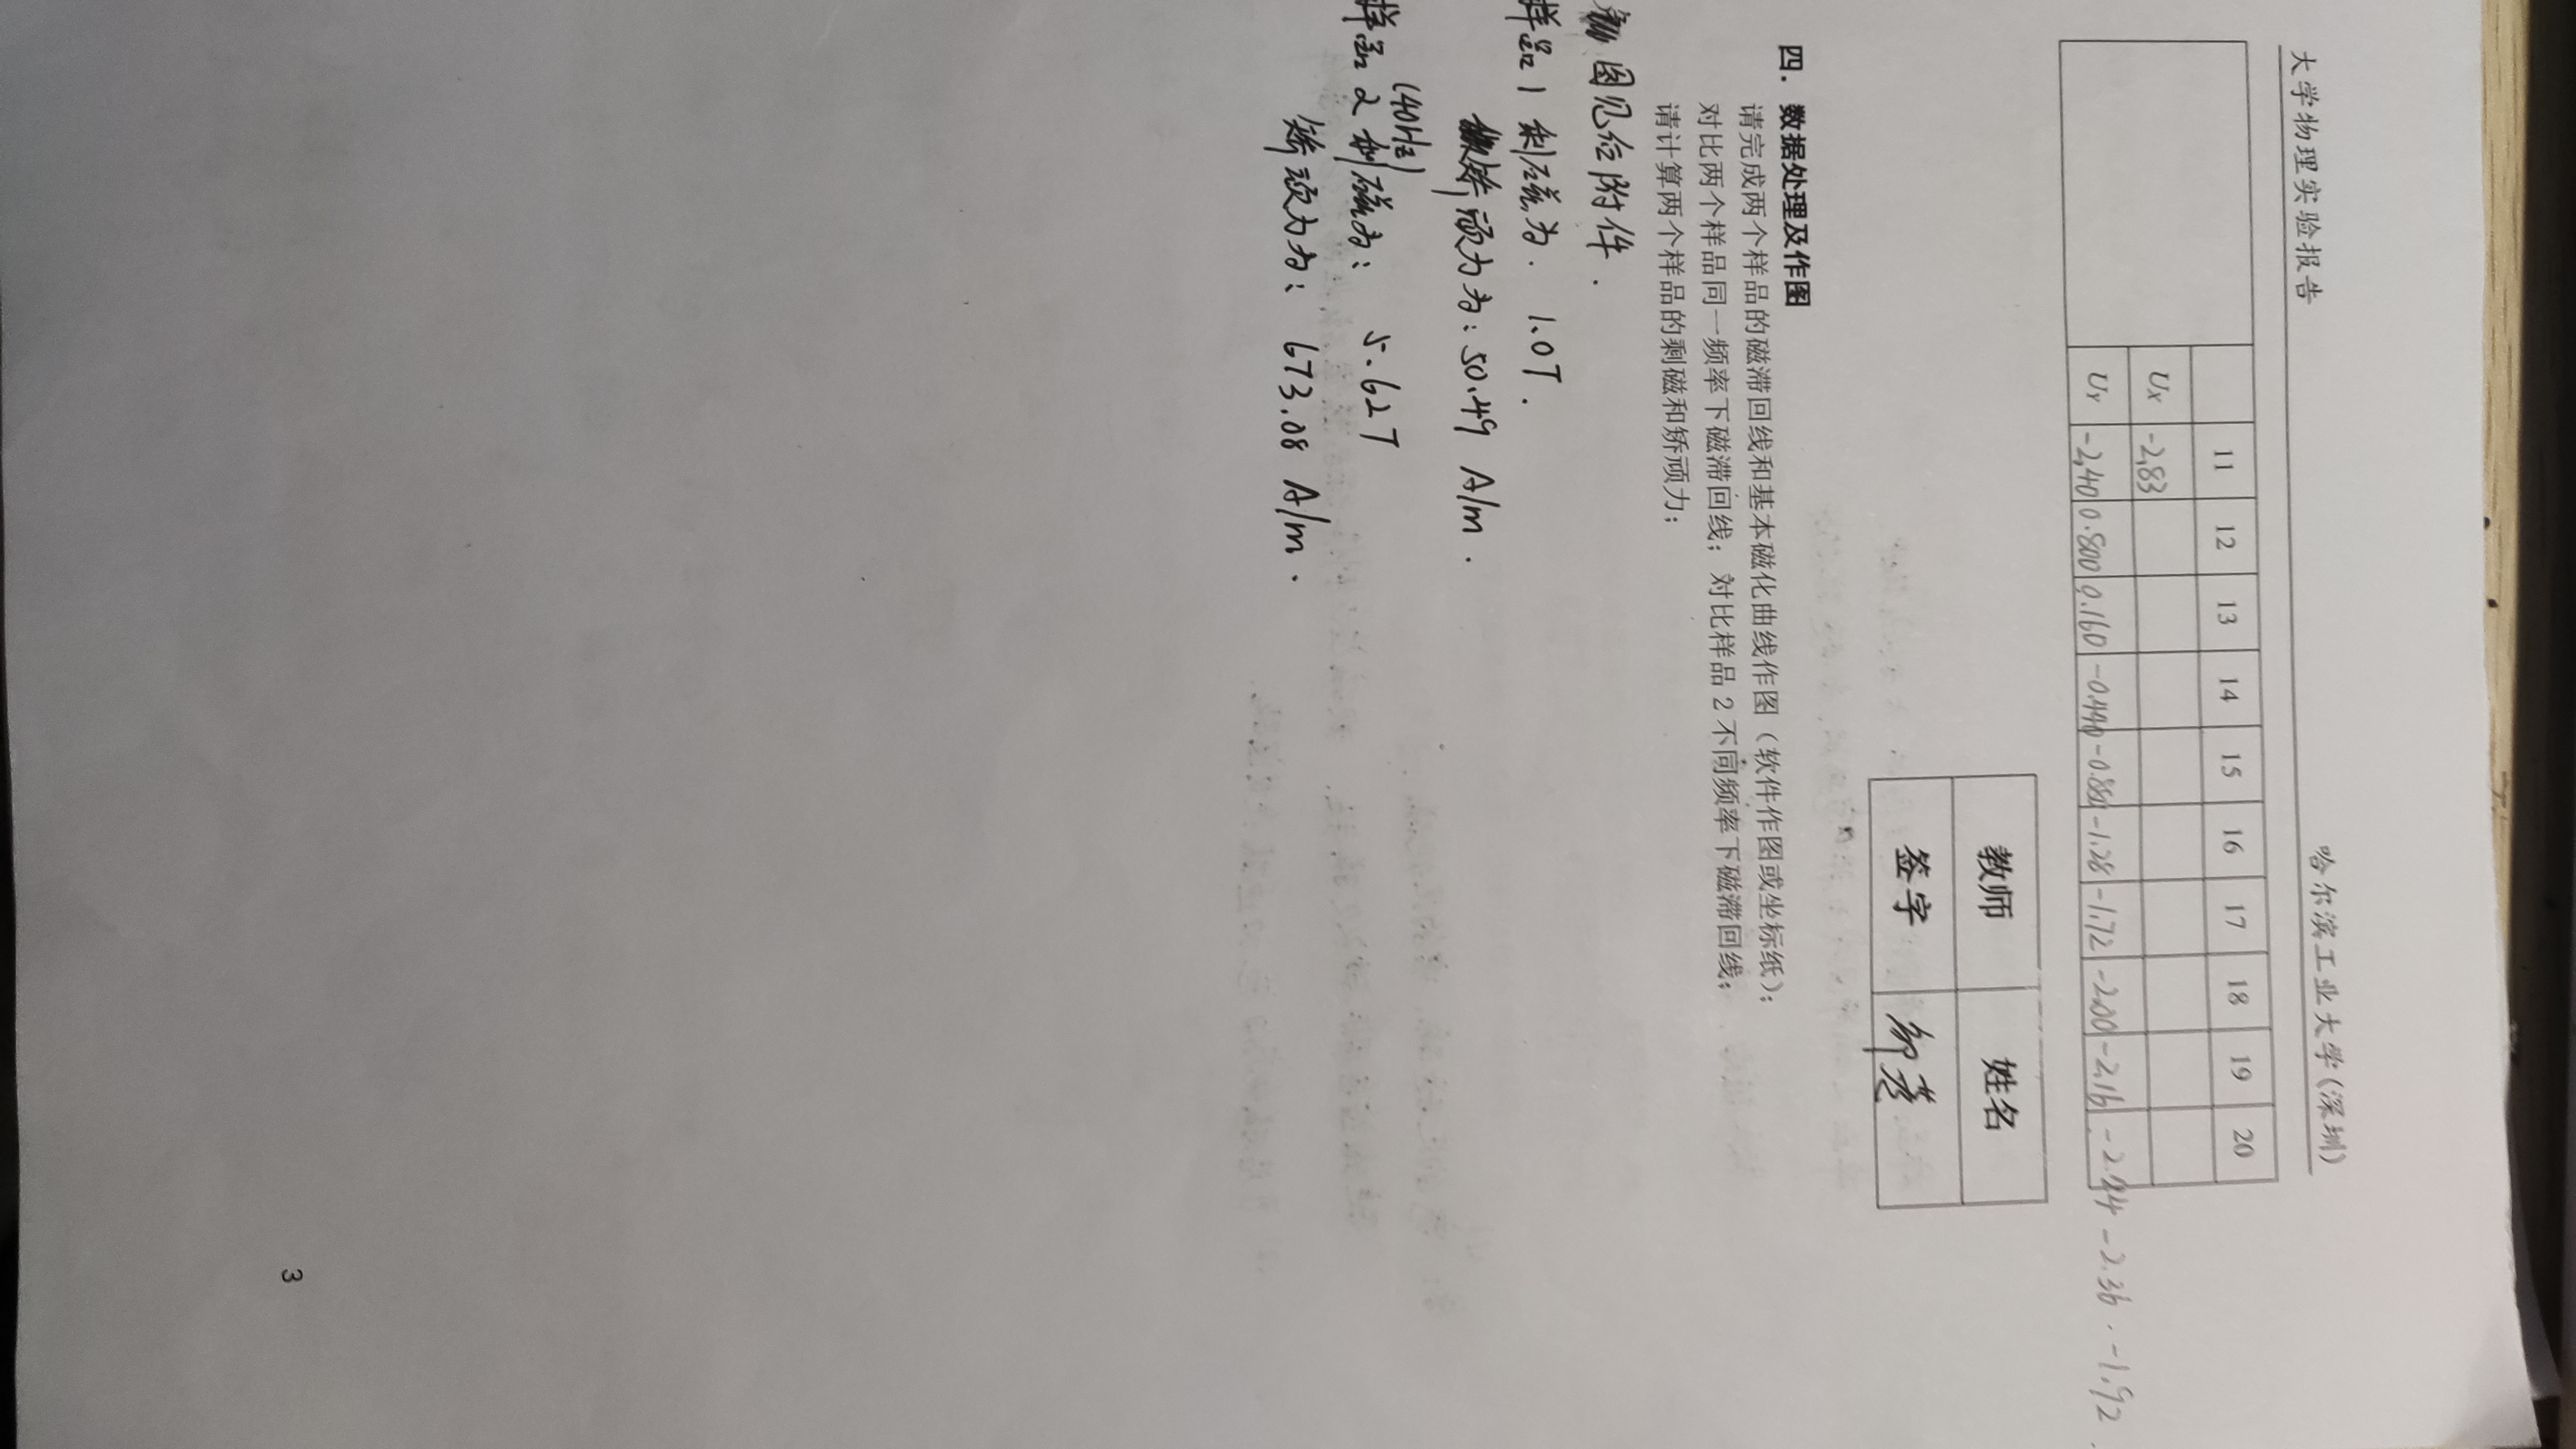 大学物理实验报告 哈尔滨工业大学(深圳)
11 12 13 14 15 16 17 18 19 20
UX -2.83
UY -2.40 0.800 0.160 -0.440 -0.880 -1.28 -1.72 -2.00 -2.16 -2.24 -2.36 -1.92
教师 姓名
签字
四. 数据处理及作图
请完成两个样品的磁滞回线和基本磁化曲线作图(软件作图或坐标纸);
对比两个样品同一频率下磁滞回线;对比样品 2 不同频率下磁滞回线;
请计算两个样品的剩磁和矫顽力;
图见后附件.
样品1 剩磁为. 1.0T.
矫顽力为: 50.49 A/m.
(40Hz)
样品 2 剩磁为: 5.62T
矫顽力为: 673.08 A/m.
3